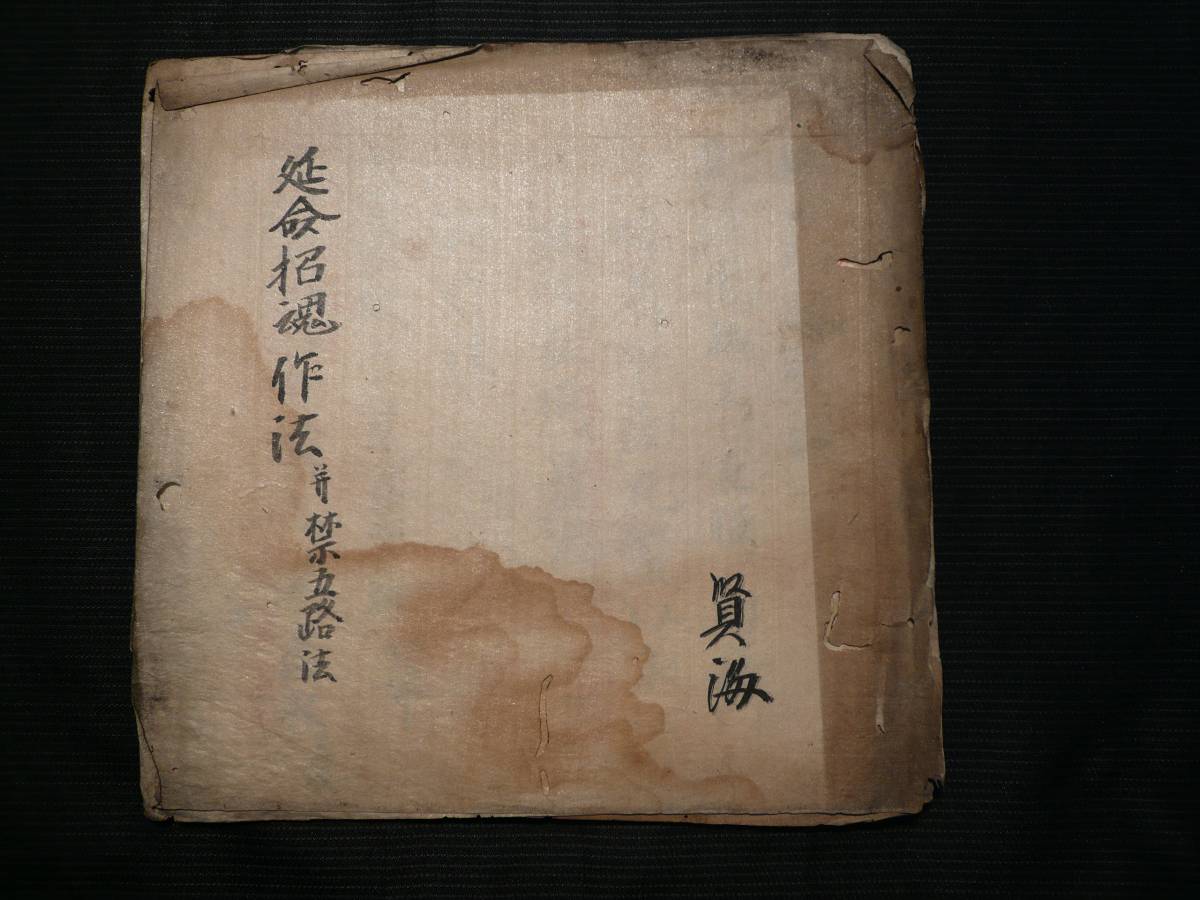 延命招魂作法并禁五路法
賢海